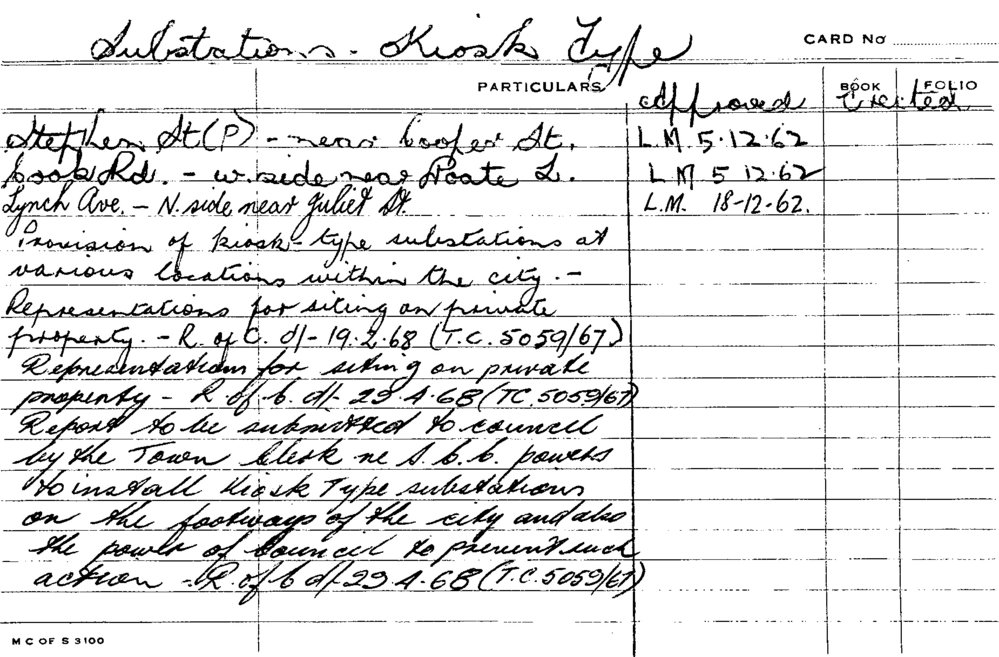 Substations - Kiosk Type
CARD No
PARTICULARS BOOK FOLIO
Approved Erected
Stephen St (P) - near Cooper St. L.M. 5.12.62
Cook Rd. - W. side near Poate L. L M 5 12.62
Lynch Ave. - N. side near Juliet St. L.M. 18-12-62.
Provision of kiosk-type substations at
various locations within the city. -
Representations for siting on private
property. - R. of C. d/- 19.2.68 (T.C. 5059/67)
Representations for siting on private
property - R. of C. d/- 29.4.68 (TC. 5059/67)
Report to be submitted to council
by the Town Clerk re S.C.C. powers
to install Kiosk Type substations
on the footways of the city and also
the power of Council to prevent such
action - R. of C d/- 29.4.68 (T.C. 5059/67)
M C OF S 3100